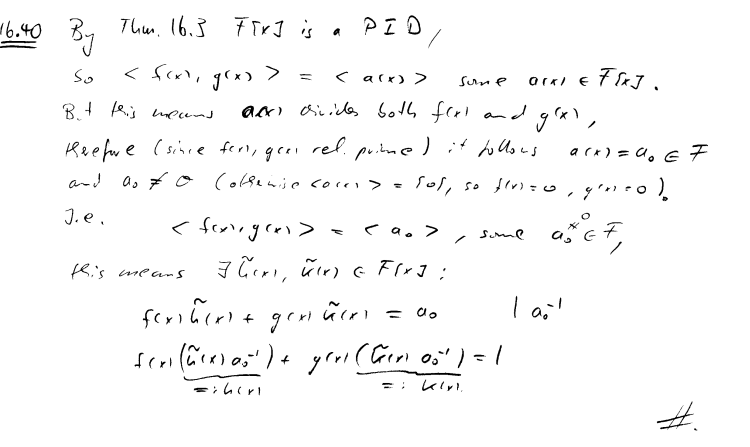 16.40 By Thm. 16.3 F[x] is a PID,
so < f(x), g(x) > = < a(x) > some a(x) ∈ F[x].
But this means a(x) divides both f(x) and g(x),
therefore (since f(x), g(x) rel. prime) it follows a(x) = a₀ ∈ F
and a₀ ≠ 0 (otherwise <a(x)> = {0}, so f(x)=0, g(x)=0).
I.e. < f(x), g(x) > = < a₀ >, some a₀ ≠ 0 ∈ F,
this means ∃ h̃(x), k̃(x) ∈ F[x] :
f(x) h̃(x) + g(x) k̃(x) = a₀ | a₀⁻¹
f(x) (h̃(x) a₀⁻¹) + g(x) (k̃(x) a₀⁻¹) = 1
=: h(x) =: k(x)
#.